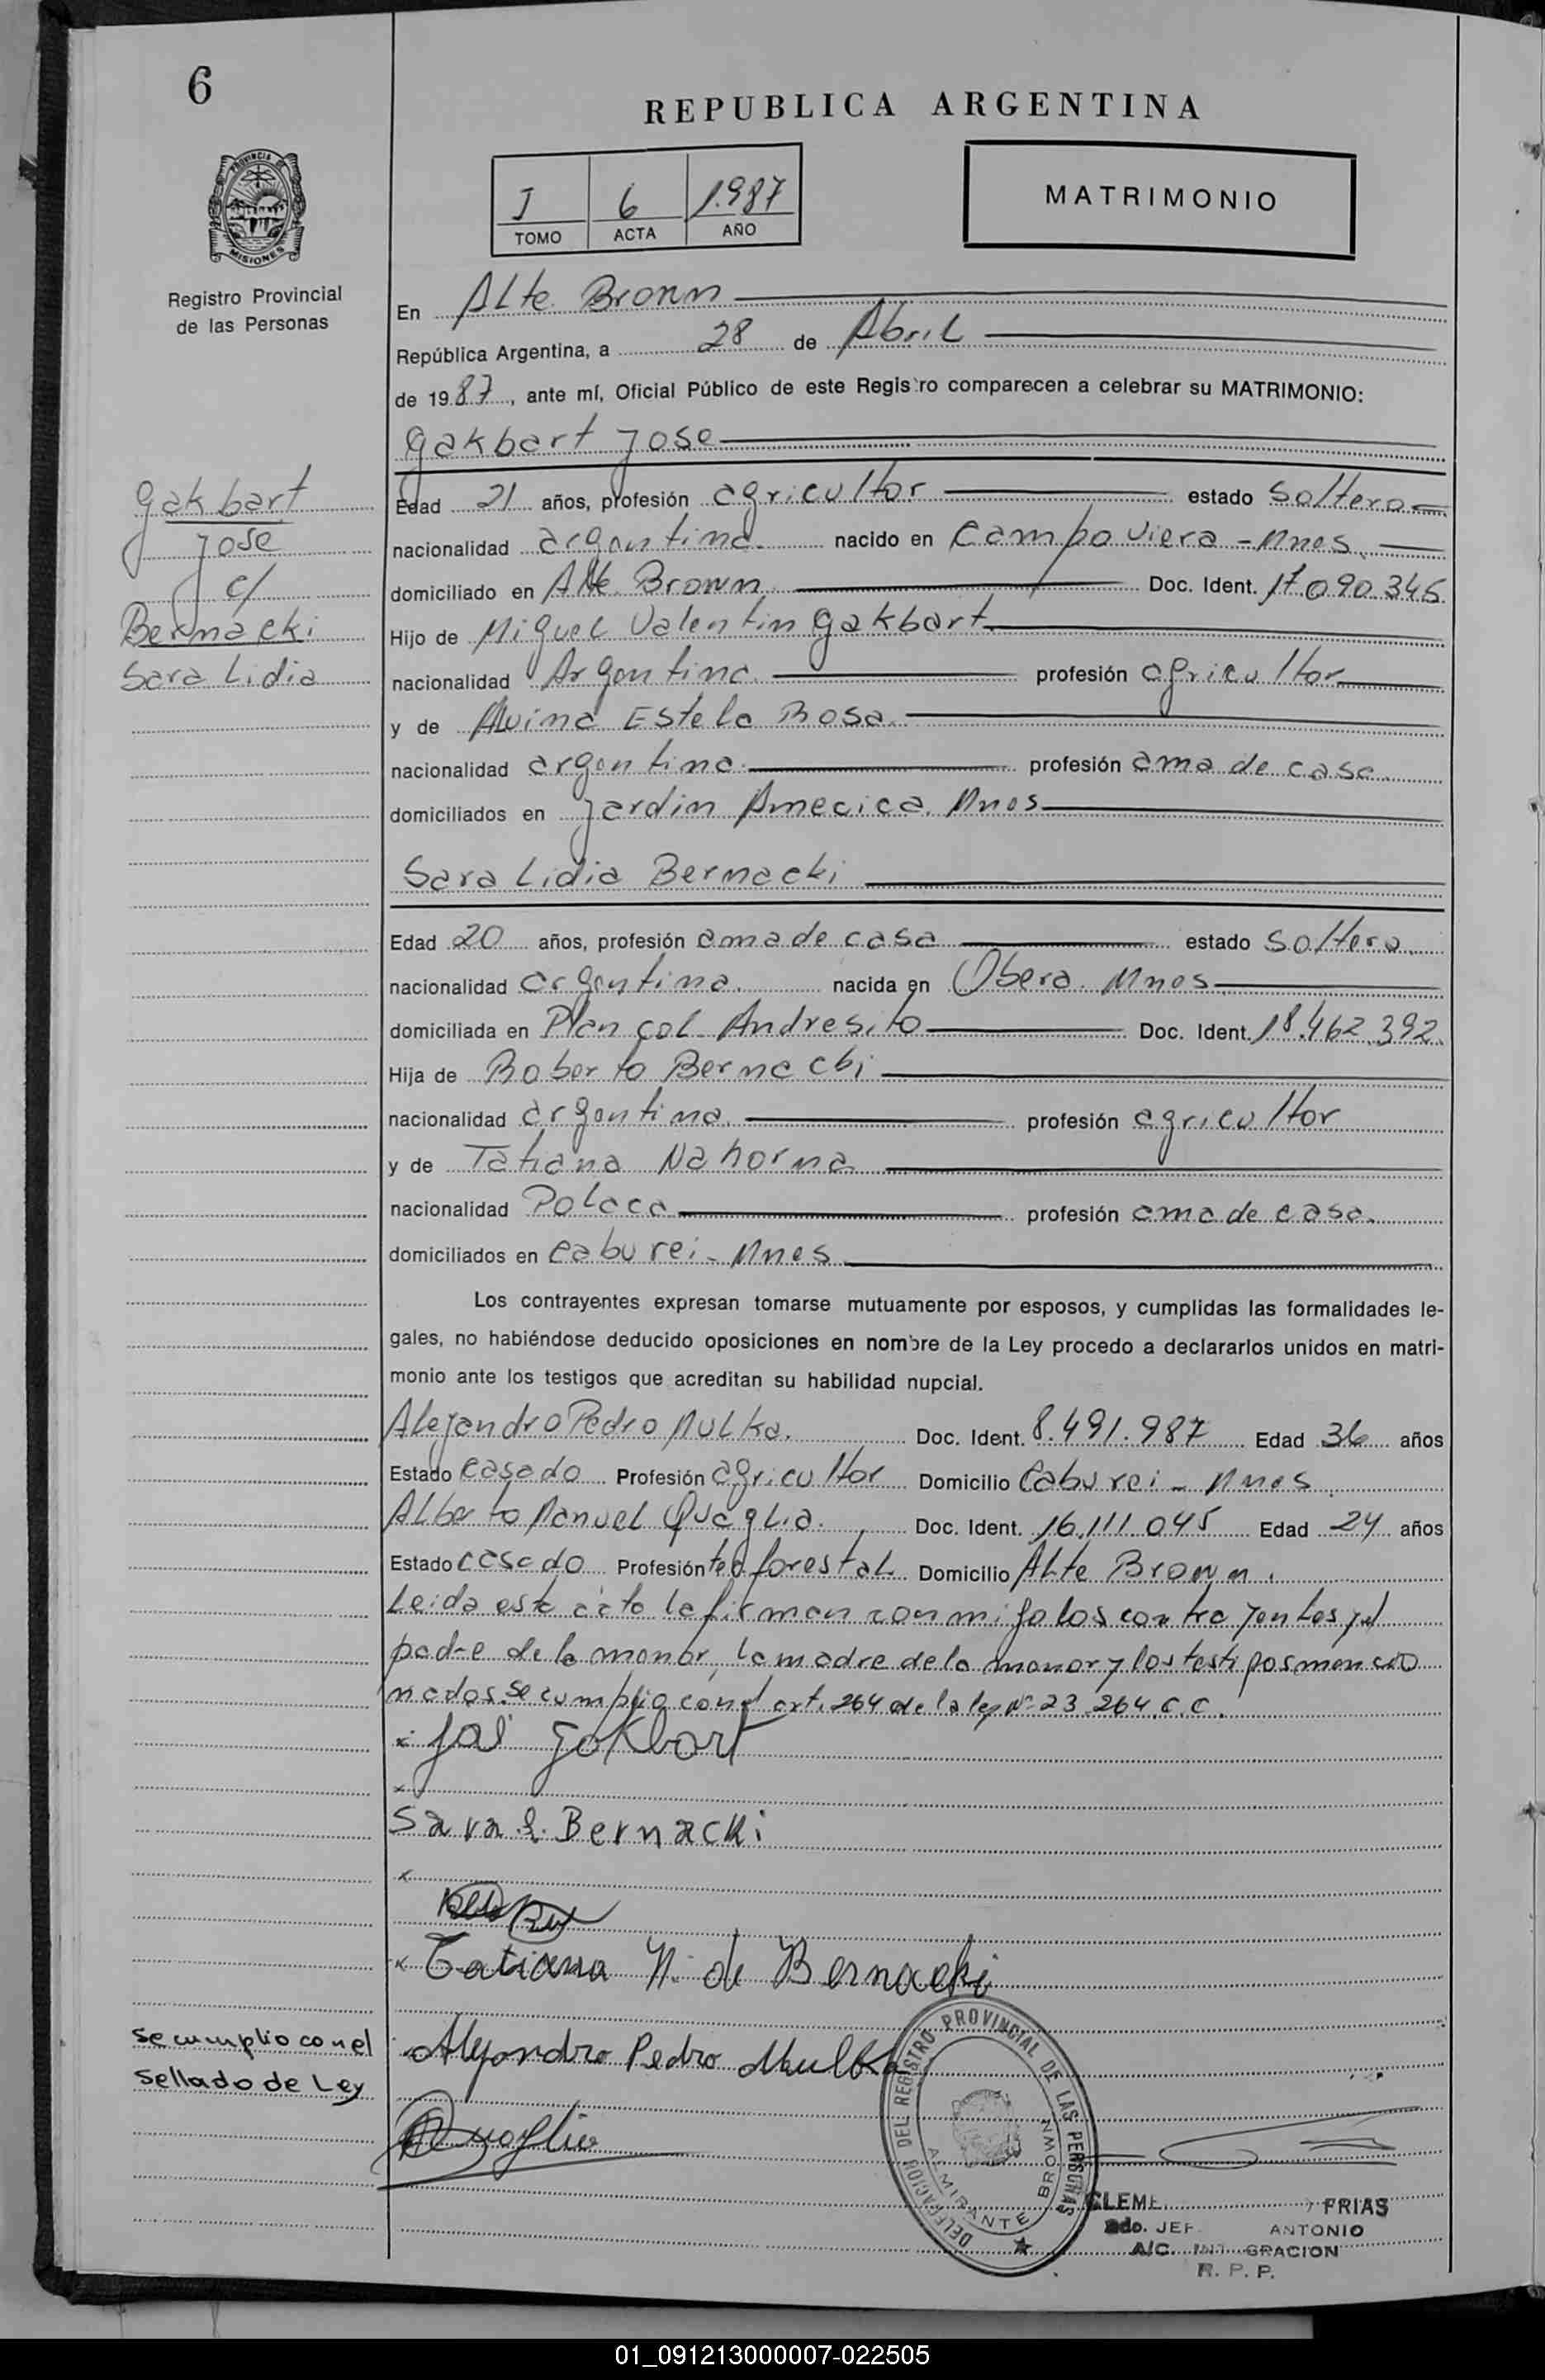 6
REPUBLICA ARGENTINA
PROVINCIA DE
MISIONES
I 6 1.987
TOMO ACTA AÑO
MATRIMONIO
Registro Provincial
de las Personas
En Alte Brown
República Argentina, a 28 de Abril
de 1987, ante mí, Oficial Público de este Registro comparecen a celebrar su MATRIMONIO:
Gakbart Jose
Gakbart
Jose
c/
Bernacki
Sara Lidia
Edad 21 años, profesión agricultor estado Soltero
nacionalidad argentina. nacido en Campo Viera - Mnes.
domiciliado en Alte Brown Doc. Ident. 17.090.345
Hijo de Miguel Valentin Gakbart
nacionalidad Argentina. profesión agricultor
y de Alvina Estela Rosa.
nacionalidad argentina. profesión ama de casa.
domiciliados en Jardin America. Mnes
Sara Lidia Bernacki
Edad 20 años, profesión ama de casa estado Soltera.
nacionalidad argentina. nacida en Obera. Mnes
domiciliada en Plan Col. Andresito Doc. Ident. 18.462.392.
Hija de Roberto Bernacki
nacionalidad argentina. profesión agricultor
y de Tatiana Nahorna
nacionalidad Polaca profesión ama de casa.
domiciliados en Caburei - Mnes
Los contrayentes expresan tomarse mutuamente por esposos, y cumplidas las formalidades le-
gales, no habiéndose deducido oposiciones en nombre de la Ley procedo a declararlos unidos en matri-
monio ante los testigos que acreditan su habilidad nupcial.
Alejandro Pedro Mulka. Doc. Ident. 8.491.987 Edad 36 años
Estado casado Profesión agricultor Domicilio Caburei - Mnes.
Alberto Manuel Quaglia. Doc. Ident. 16.111.045 Edad 24 años
Estado casado Profesión tec. forestal. Domicilio Alte Brown.
Leida esta acta la firman conmigo los contrayentes, el
padre de la menor, la madre de la menor y los testigos mencio
nados. Se cumplio con el art. 264 de la ley Nº 23.264. C.C.
x José Gakbart
x
Sara L. Bernacki
x
x Tatiana N. de Bernacki
Se cumplio con el
Sellado de Ley
Alejandro Pedro Mulka
Quaglia
DELEGACION DEL REGISTRO PROVINCIAL DE LAS PERSONAS
ALMIRANTE BROWN
CLEME FRIAS
2do. JEF ANTONIO
A/C. INT GRACION
R. P. P.
01_091213000007-022505